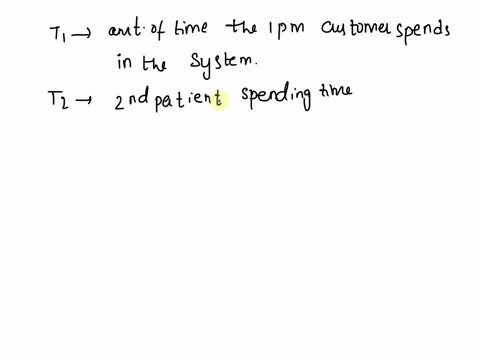 T1 → amt. of time the 1pm customer spends
in the system.
T2 → 2nd patient spending time